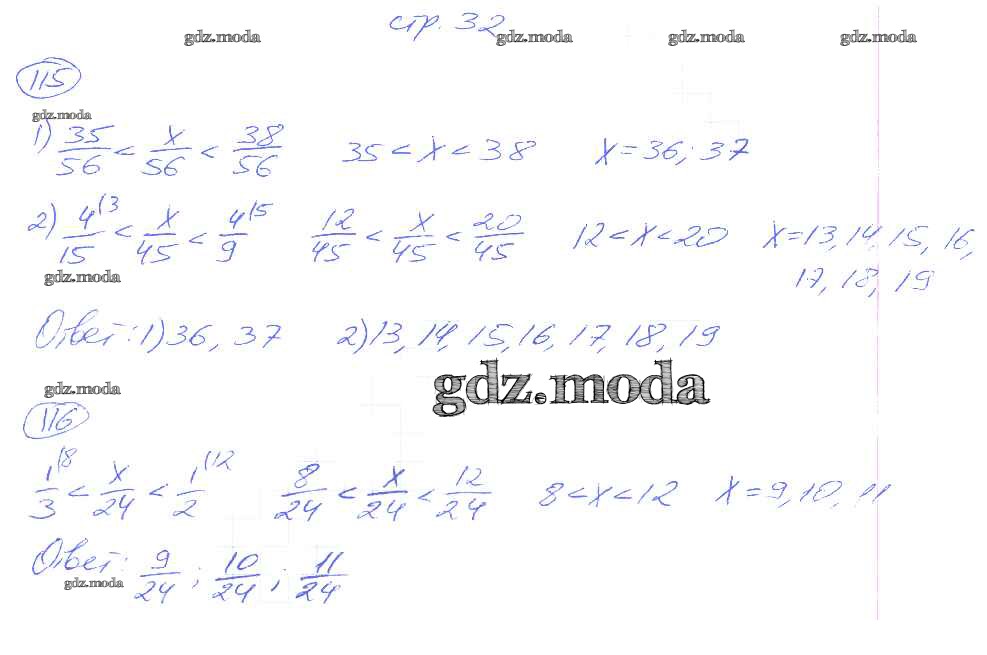 стр. 32
gdz.moda gdz.moda gdz.moda gdz.moda
115
gdz.moda
1) 35/56 < x/56 < 38/56 35 < x < 38 x = 36; 37
2) 4/15 (3 < x/45 < 4/9 (5 12/45 < x/45 < 20/45 12 < x < 20 x = 13, 14, 15, 16,
17, 18, 19
gdz.moda
Ответ: 1) 36, 37 2) 13, 14, 15, 16, 17, 18, 19
gdz.moda
gdz.moda
116
1/3 (8 < x/24 < 1/2 (12 8/24 < x/24 < 12/24 8 < x < 12 x = 9, 10, 11
Ответ: 9/24 ; 10/24 ; 11/24
gdz.moda